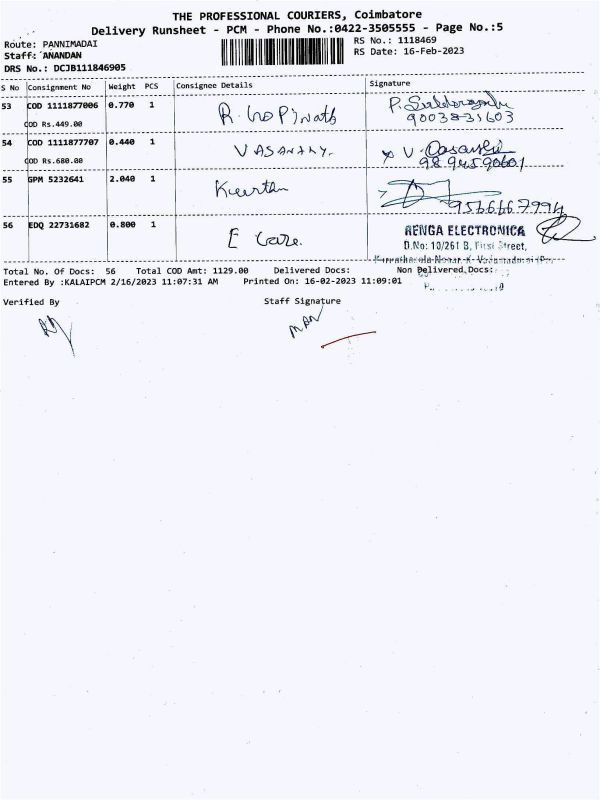 THE PROFESSIONAL COURIERS, Coimbatore
Delivery Runsheet - PCM - Phone No.:0422-3505555 - Page No.:5
Route: PANNIMADAI
RS No.: 1118469
Staff: ANANDAN
RS Date: 16-Feb-2023
DRS No.: DCJB111846905
S No Consignment No Weight PCS Consignee Details Signature
53 COD 1111877006 0.770 1 R. GoPiNath P.
COD Rs.449.00 9003831603
54 COD 1111877707 0.440 1 VASANTHY. V.
COD Rs.680.00 9894590601
55 GPM 5232641 2.040 1 Keerthn
9566667994
56 EDQ 22731682 0.800 1 E Care. RENGA ELECTRONICA
D.No: 10/261 B, First Street,
Total No. Of Docs: 56 Total COD Amt: 1129.00 Delivered Docs: Non Delivered Docs:
Entered By :KALAIPCM 2/16/2023 11:07:31 AM Printed On: 16-02-2023 11:09:01
Verified By Staff Signature